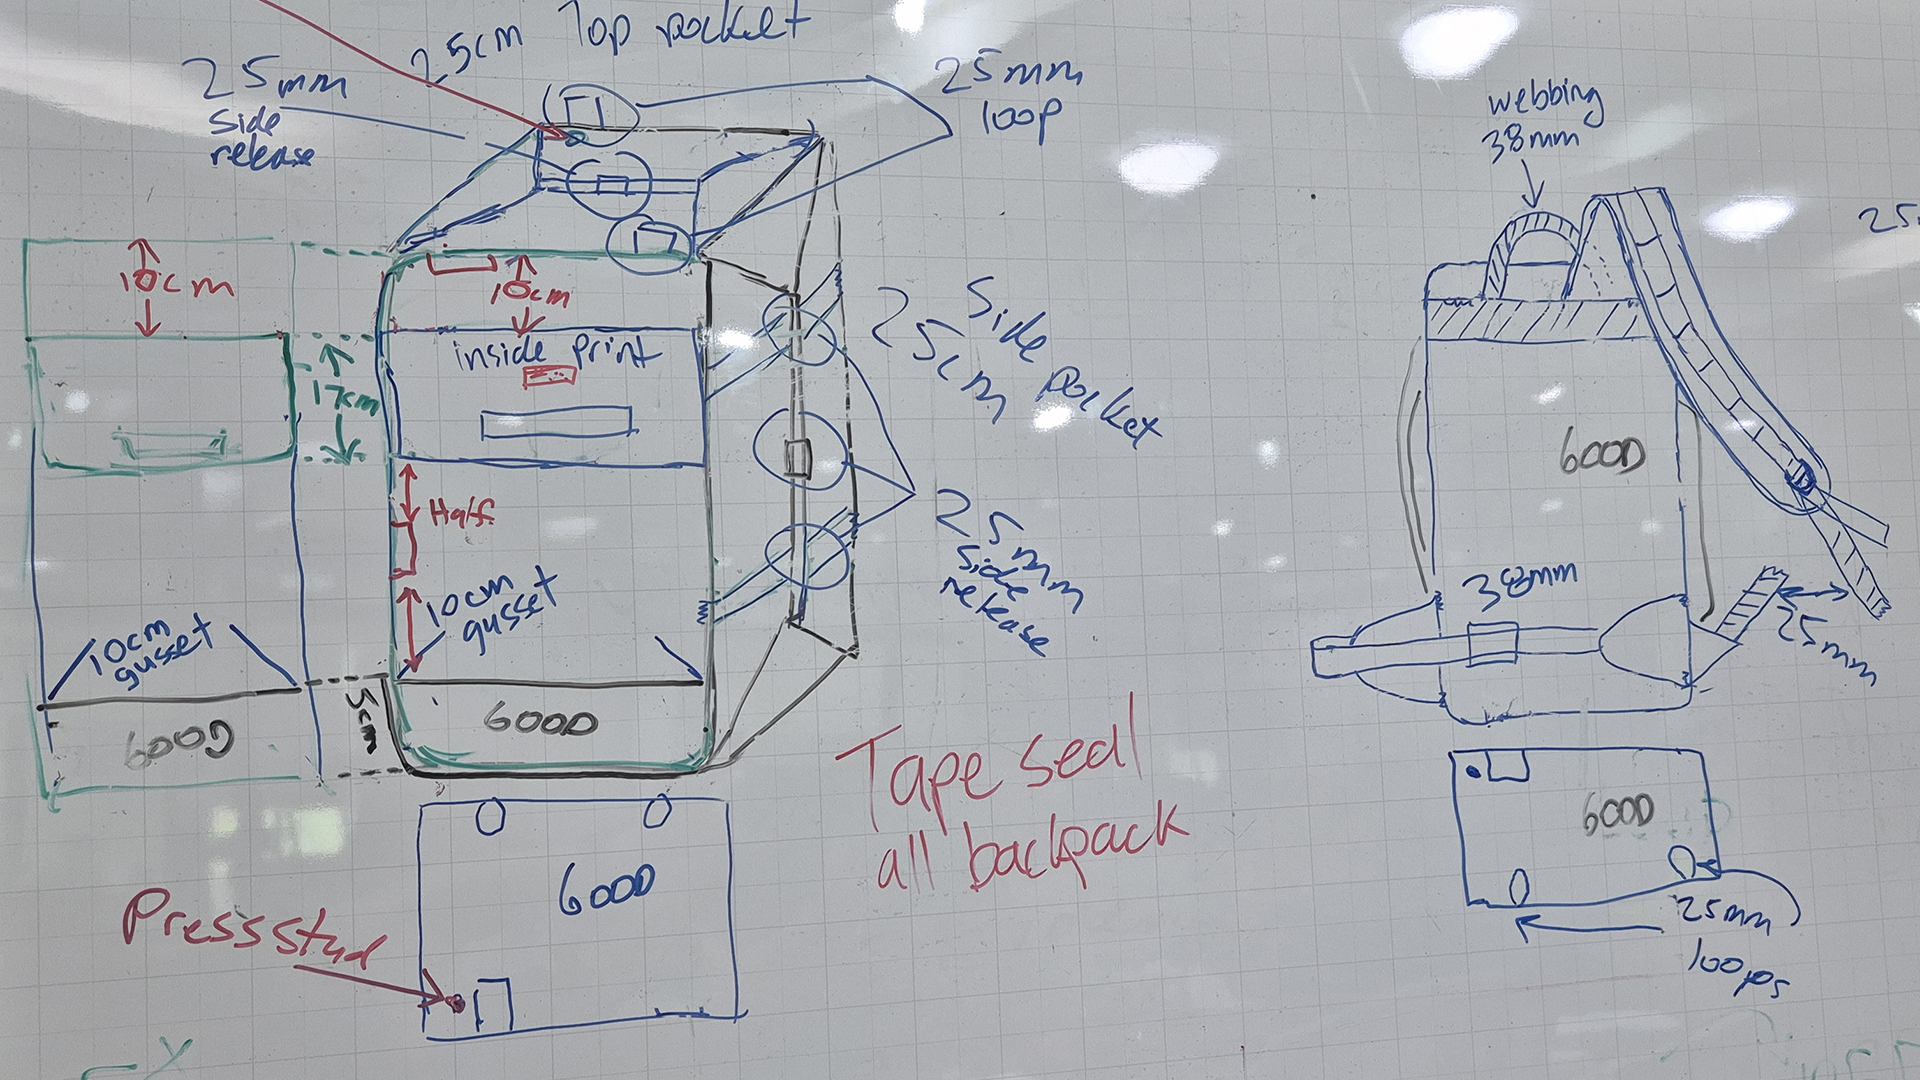 25cm Top pocket
25mm
side
release
25mm
loop
webbing
38mm
10cm
10cm
inside print
17cm
Side pocket
25cm
Half
10cm
gusset
10cm
gusset
5cm
600D
600D
25mm
side
release
Tape seal
all backpack
600D
Press stud
600D
38mm
25mm
600D
25mm
loops